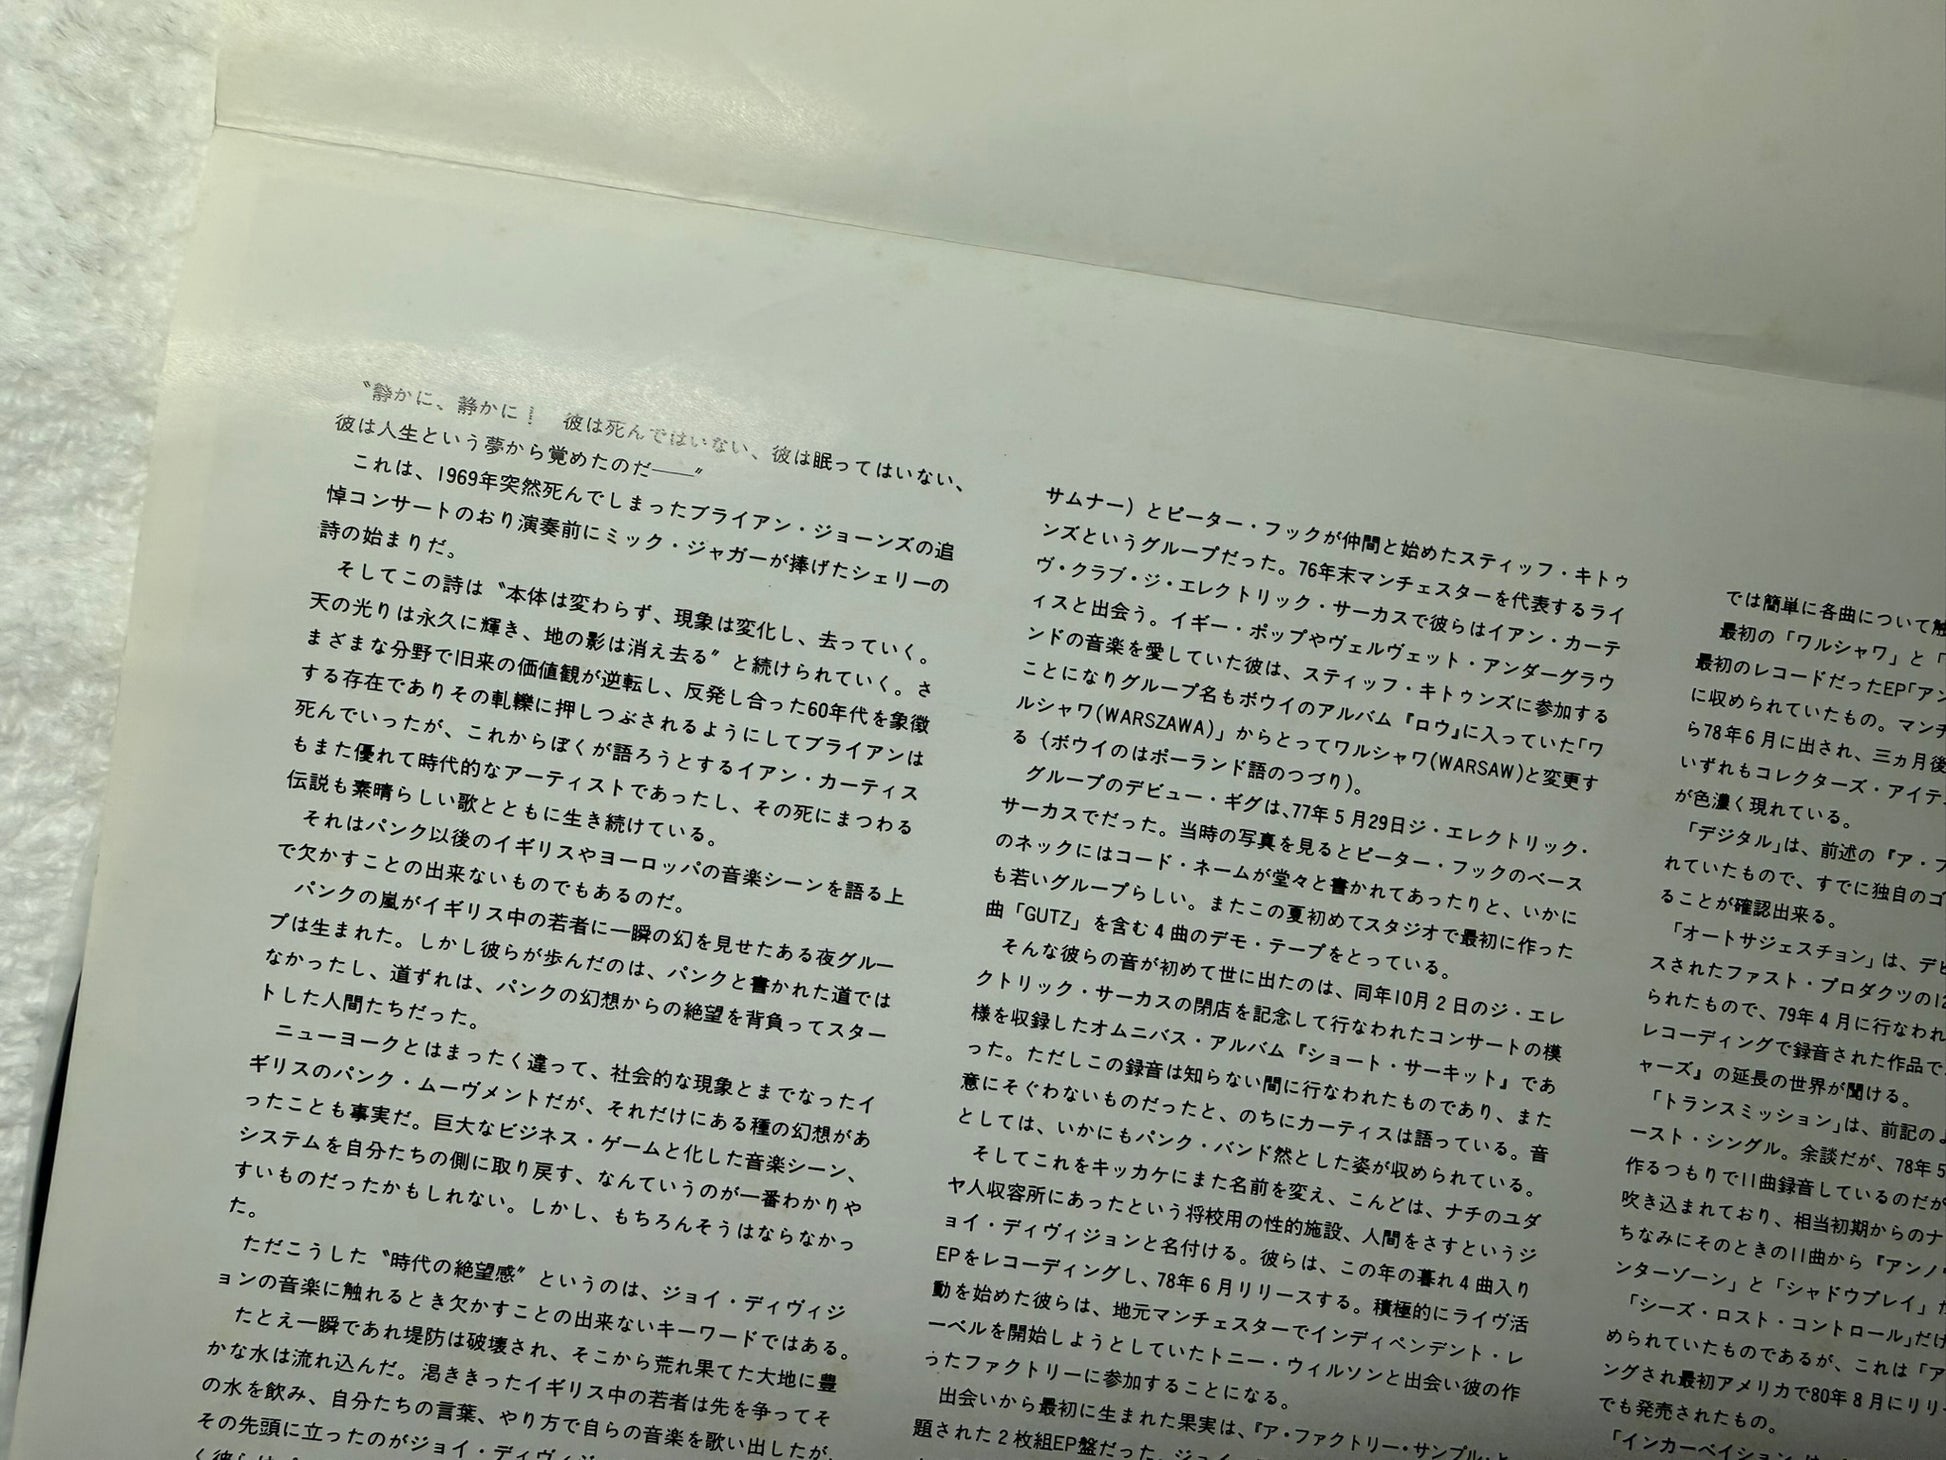 〝静かに、静かに！　彼は死んではいない、彼は眠ってはいない、
彼は人生という夢から覚めたのだ――〟
これは、1969年突然死んでしまったブライアン・ジョーンズの追
悼コンサートのおり演奏前にミック・ジャガーが捧げたシェリーの
詩の始まりだ。
そしてこの詩は〝本体は変わらず、現象は変化し、去っていく。
天の光りは永久に輝き、地の影は消え去る〟と続けられていく。さ
まざまな分野で旧来の価値観が逆転し、反発し合った60年代を象徴
する存在でありその軋轢に押しつぶされるようにしてブライアンは
死んでいったが、これからぼくが語ろうとするイアン・カーティス
もまた優れて時代的なアーティストであったし、その死にまつわる
伝説も素晴らしい歌とともに生き続けている。
それはパンク以後のイギリスやヨーロッパの音楽シーンを語る上
で欠かすことの出来ないものでもあるのだ。
パンクの嵐がイギリス中の若者に一瞬の幻を見せたある夜グルー
プは生まれた。しかし彼らが歩んだのは、パンクと書かれた道では
なかったし、道ずれは、パンクの幻想からの絶望を背負ってスター
トした人間たちだった。
ニューヨークとはまったく違って、社会的な現象とまでなったイ
ギリスのパンク・ムーヴメントだが、それだけにある種の幻想があ
ったことも事実だ。巨大なビジネス・ゲームと化した音楽シーン、
システムを自分たちの側に取り戻す、なんていうのが一番わかりや
すいものだったかもしれない。しかし、もちろんそうはならなかっ
た。
ただこうした〝時代の絶望感〟というのは、ジョイ・ディヴィジ
ョンの音楽に触れるとき欠かすことの出来ないキーワードではある。
たとえ一瞬であれ堤防は破壊され、そこから荒れ果てた大地に豊
かな水は流れ込んだ。渇ききったイギリス中の若者は先を争ってそ
の水を飲み、自分たちの言葉、やり方で自らの音楽を歌い出したが、
その先頭に立ったのがジョイ・ディヴィジ
く彼らは
サムナー）とピーター・フックが仲間と始めたスティッフ・キトゥ
ンズというグループだった。76年末マンチェスターを代表するライ
ヴ・クラブ・ジ・エレクトリック・サーカスで彼らはイアン・カーテ
ィスと出会う。イギー・ポップやヴェルヴェット・アンダーグラウ
ンドの音楽を愛していた彼は、スティッフ・キトゥンズに参加する
ことになりグループ名もボウイのアルバム『ロウ』に入っていた「ワ
ルシャワ(WARSZAWA)」からとってワルシャワ(WARSAW)と変更す
る（ボウイのはポーランド語のつづり）。
グループのデビュー・ギグは、77年５月29日ジ・エレクトリック・
サーカスでだった。当時の写真を見るとピーター・フックのベース
のネックにはコード・ネームが堂々と書かれてあったりと、いかに
も若いグループらしい。またこの夏初めてスタジオで最初に作った
曲「GUTZ」を含む４曲のデモ・テープをとっている。
そんな彼らの音が初めて世に出たのは、同年10月２日のジ・エレ
クトリック・サーカスの閉店を記念して行なわれたコンサートの模
様を収録したオムニバス・アルバム『ショート・サーキット』であ
った。ただしこの録音は知らない間に行なわれたものであり、また
意にそぐわないものだったと、のちにカーティスは語っている。音
としては、いかにもパンク・バンド然とした姿が収められている。
そしてこれをキッカケにまた名前を変え、こんどは、ナチのユダ
ヤ人収容所にあったという将校用の性的施設、人間をさすというジ
ョイ・ディヴィジョンと名付ける。彼らは、この年の暮れ４曲入り
EPをレコーディングし、78年６月リリースする。積極的にライヴ活
動を始めた彼らは、地元マンチェスターでインディペンデント・レ
ーベルを開始しようとしていたトニー・ウィルソンと出会い彼の作
ったファクトリーに参加することになる。
出会いから最初に生まれた果実は、『ア・ファクトリー・サンプル』と
題された２枚組EP盤だった。ジョイ
では簡単に各曲について触
最初の「ワルシャワ」と「
最初のレコードだったEP「アン
に収められていたもの。マンチ
ら78年６月に出され、三ヵ月後
いずれもコレクターズ・アイテ
が色濃く現れている。
「デジタル」は、前述の『ア・フ
れていたもので、すでに独自のゴ
ることが確認出来る。
「オートサジェスチョン」は、デビ
スされたファスト・プロダクツの12
られたもので、79年４月に行なわれ
レコーディングで録音された作品で
ャーズ』の延長の世界が聞ける。
「トランスミッション」は、前記の
ースト・シングル。余談だが、78年５
作るつもりで11曲録音しているのだが
吹き込まれており、相当初期からのナ
ちなみにそのときの11曲から『アンノ
ンターゾーン」と「シャドウプレイ」が
「シーズ・ロスト・コントロール」だけ
められていたものであるが、これは「ア
ングされ最初アメリカで80年８月にリリー
でも発売されたもの。
「インカーベイション」は